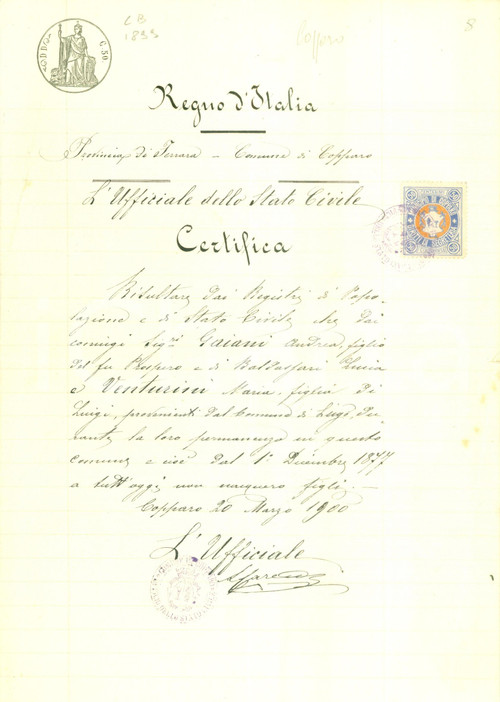 C. 50.
CB
1899
Copparo
8
Regno d'Italia
Provincia di Ferrara - Comune di Copparo
L'Ufficiale dello Stato Civile
Certifica
Risultare dai Registri di Popo-
lazione e di Stato Civile che dai
coniugi Sig.ri Gaiani Andrea, figlio
del fu Prospero e di Baldassari Lucia
e Venturini Maria, figlia di
Luigi, provenienti dal Comune di Lugo, du-
rante la loro permanenza in questo
comune e cioè dal 1° Dicembre 1877
a tutt'oggi, non nacquero figli. -
Copparo 20 Marzo 1900
L'Ufficiale